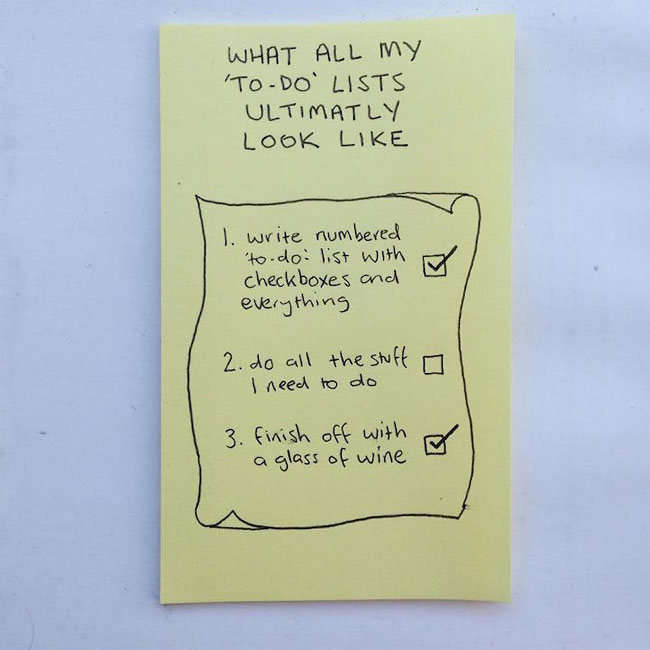 WHAT ALL MY
'TO-DO' LISTS
ULTIMATLY
LOOK LIKE
1. write numbered
'to-do' list with
checkboxes and
everything
2. do all the stuff
I need to do
3. finish off with
a glass of wine